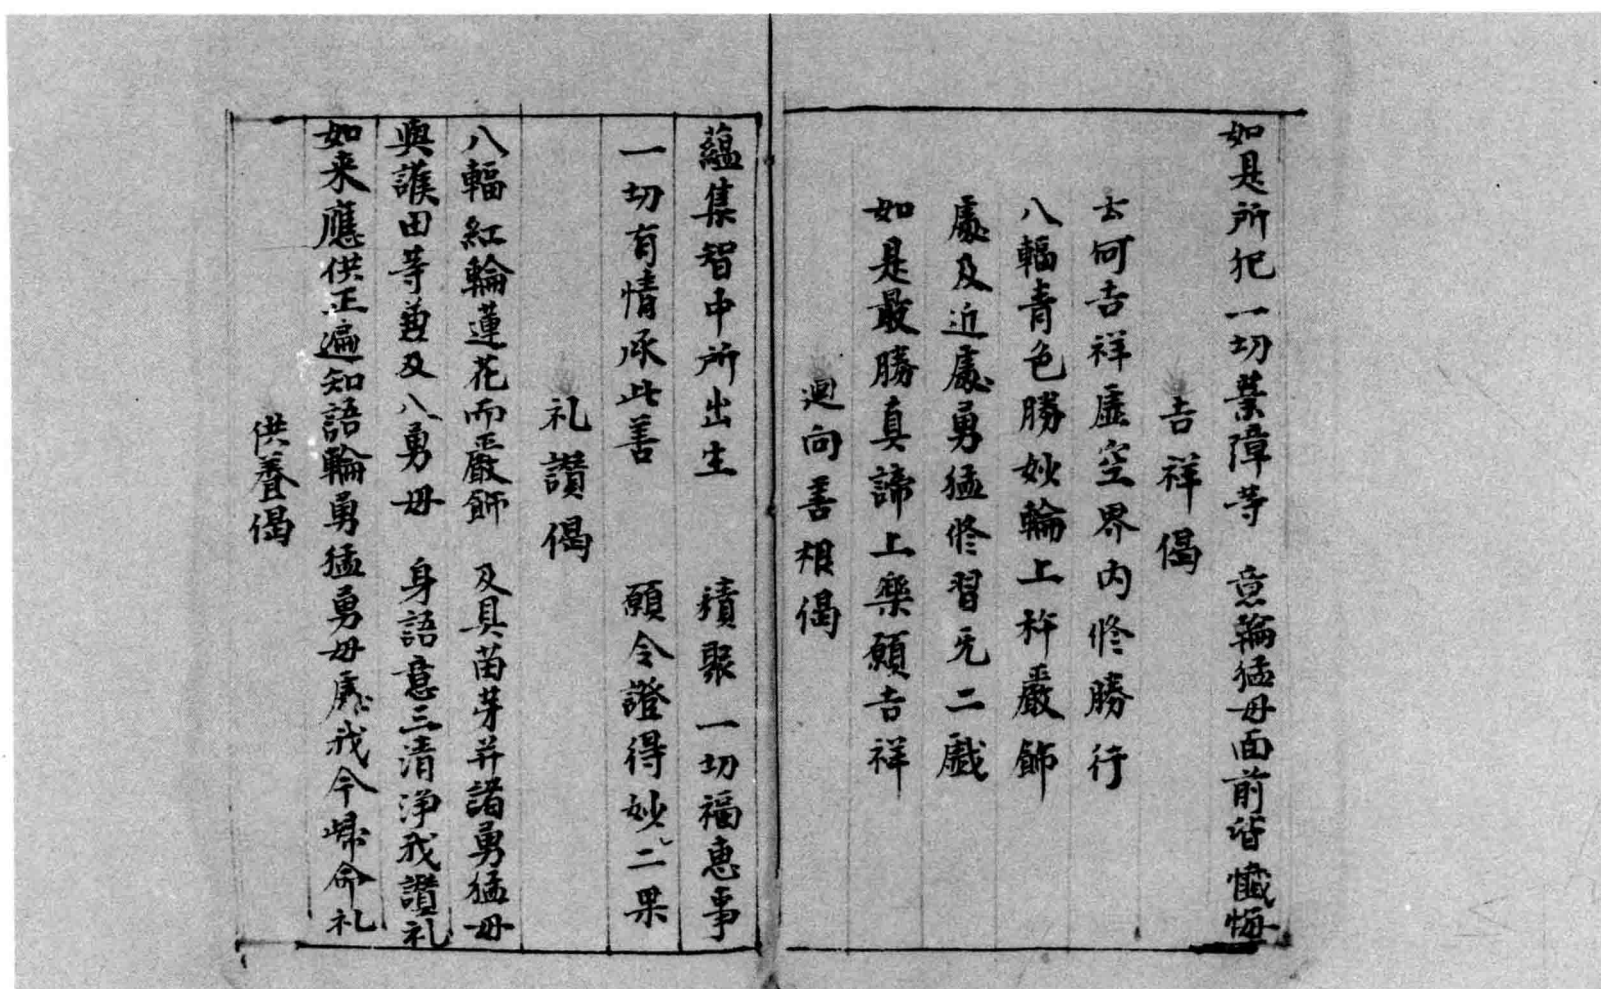 如是所犯一切業障等　意輪猛母面前皆懺悔
吉祥偈
云何吉祥虛空界内修勝行
八輻青色勝妙輪上杵嚴飾
處及近處勇猛修習无二戲
如是最勝真諦上樂願吉祥
迴向善根偈
蘊集智中所出生　積聚一切福惠事
一切有情承此善　願令證得妙二果
礼讃偈
八輻紅輪蓮花而嚴飾　及具苗芽并諸勇猛母
與護田等尊及八勇母　身語意三清淨我讃礼
如来應供正遍知語輪勇猛勇母處我今歸命礼
供養偈